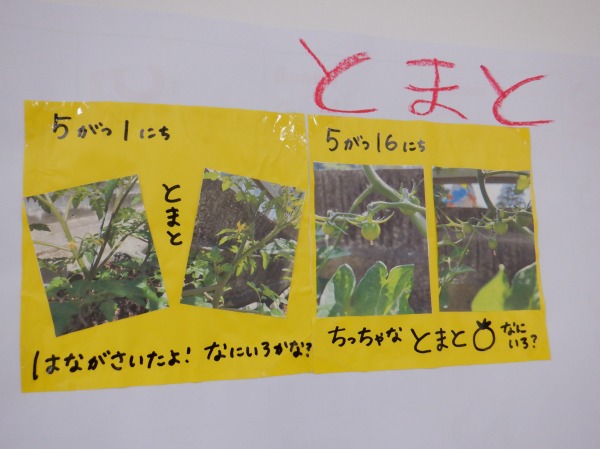 とまと
5がつ1にち
とまと
はながさいたよ! なにいろかな?
5がつ16にち
ちっちゃな とまと なに
いろ?